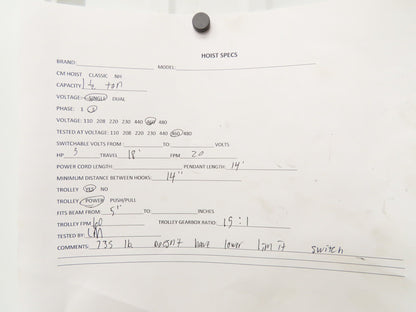 HOIST SPECS
BRAND: MODEL:
CM HOIST CLASSIC NH
CAPACITY 1 1/2 ton
VOLTAGE: SINGLE DUAL
PHASE: 1 3
VOLTAGE: 110 208 220 230 440 460 480
TESTED AT VOLTAGE: 110 208 220 230 440 460 480
SWITCHABLE VOLTS FROM TO VOLTS
HP 3 TRAVEL 18' FPM 20
POWER CORD LENGTH: PENDANT LENGTH: 14'
MINIMUM DISTANCE BETWEEN HOOKS: 14"
TROLLEY YES NO
TROLLEY POWER PUSH/PULL
FITS BEAM FROM 5" TO INCHES
TROLLEY FPM 60 TROLLEY GEARBOX RATIO: 15:1
TESTED BY:
COMMENTS: 235 lb doesn't have lower limit switch